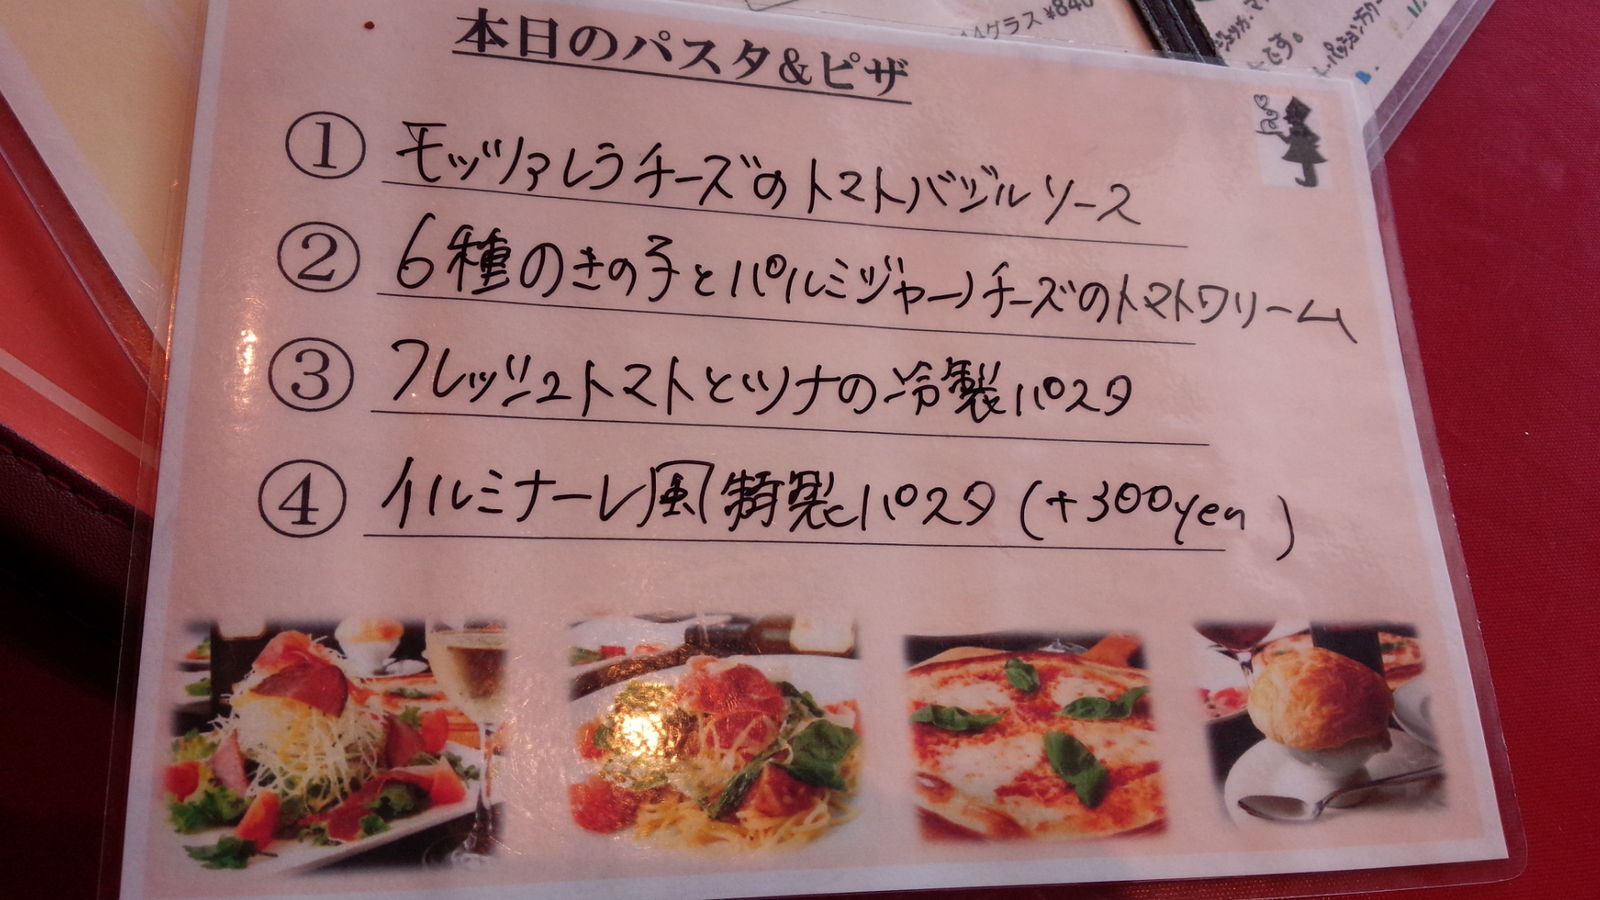 グラス ¥840
です。
本日のパスタ&ピザ
① モッツァレラチーズのトマトバジルソース
② 6種のきの子とパルミジャーノチーズのトマトクリーム
③ フレッシュトマトとツナの冷製パスタ
④ イルミナーレ風特製パスタ (+300yen)